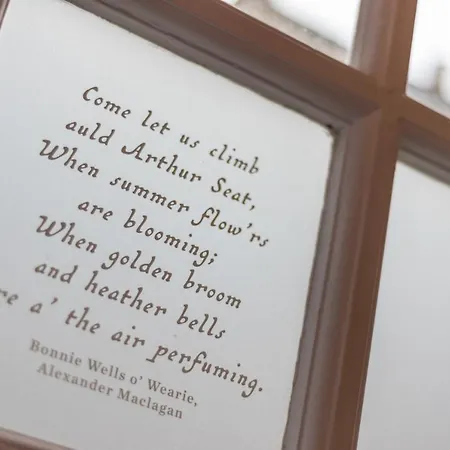 Come let us climb
auld Arthur Seat,
When summer flow'rs
are blooming;
When golden broom
and heather bells
a' the air perfuming.
Bonnie Wells o' Wearie,
Alexander Maclagan